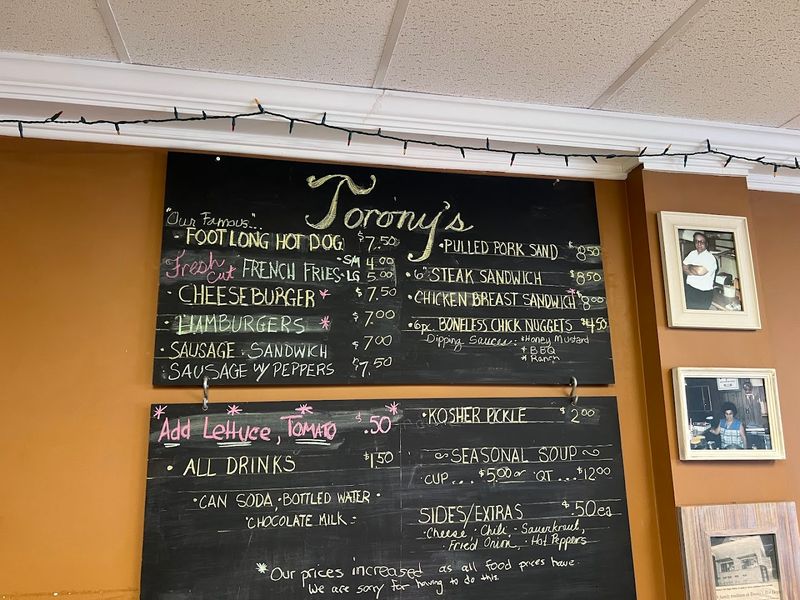 Torony's
"Our Famous"
• FOOT LONG HOT DOG $7.50
Fresh Cut FRENCH FRIES • SM 4.00
• LG 5.00
• CHEESEBURGER * $7.50
• HAMBURGERS * $7.00
• SAUSAGE SANDWICH $7.00
• SAUSAGE W/ PEPPERS $7.50
• PULLED PORK SAND $8.50
• 6" STEAK SANDWICH $8.50
CHICKEN BREAST SANDWICH * $8.00
• 6pc. BONELESS CHICK NUGGETS $4.50
Dipping Sauces: * Honey Mustard
* BBQ
* Ranch
* Add Lettuce, Tomato .50 *
• ALL DRINKS $1.50
• CAN SODA, • BOTTLED WATER •
• CHOCOLATE MILK -
• KOSHER PICKLE $2.00
~ SEASONAL SOUP ~
CUP ... $5.00 or QT ... $12.00
SIDES/EXTRAS $.50 ea
Cheese, Chili, - Sauerkraut,
Fried Onion, • Hot Peppers
* Our prices increased as all food prices have.
We are sorry for having to do this.